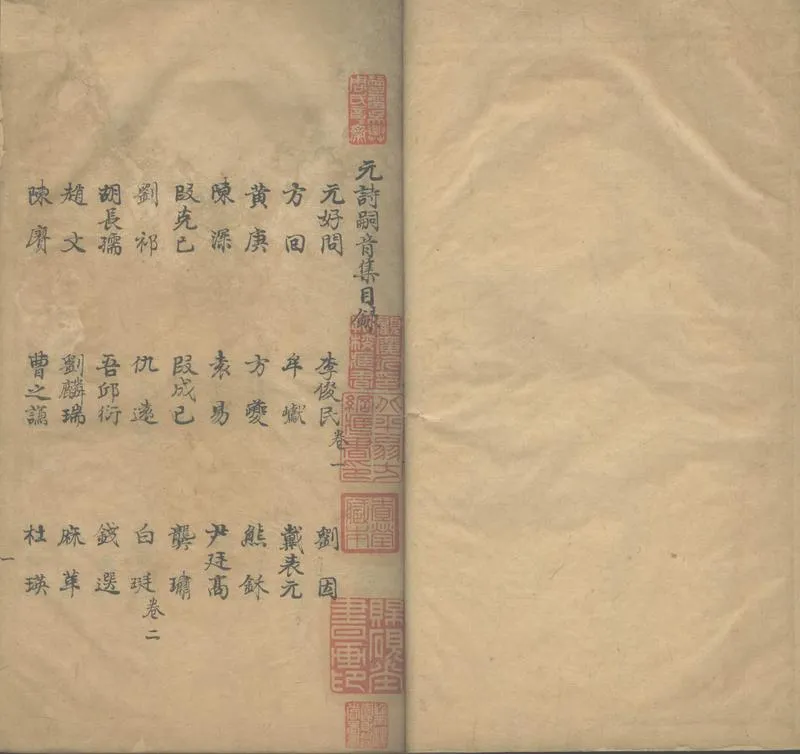 元詩嗣音集目錄
元好問 李俊民卷一 劉因
方回 牟巘 戴表元
黃庚 方夔 熊鉌
陳深 袁易 尹廷高
段克己 段成己 龔璛
劉祁 仇遠 白珽卷二
胡長孺 吾邱衍 錢選
趙文 劉麟瑞 麻革
陳賡 曹之謙 杜瑛
一
賜硯堂書画印